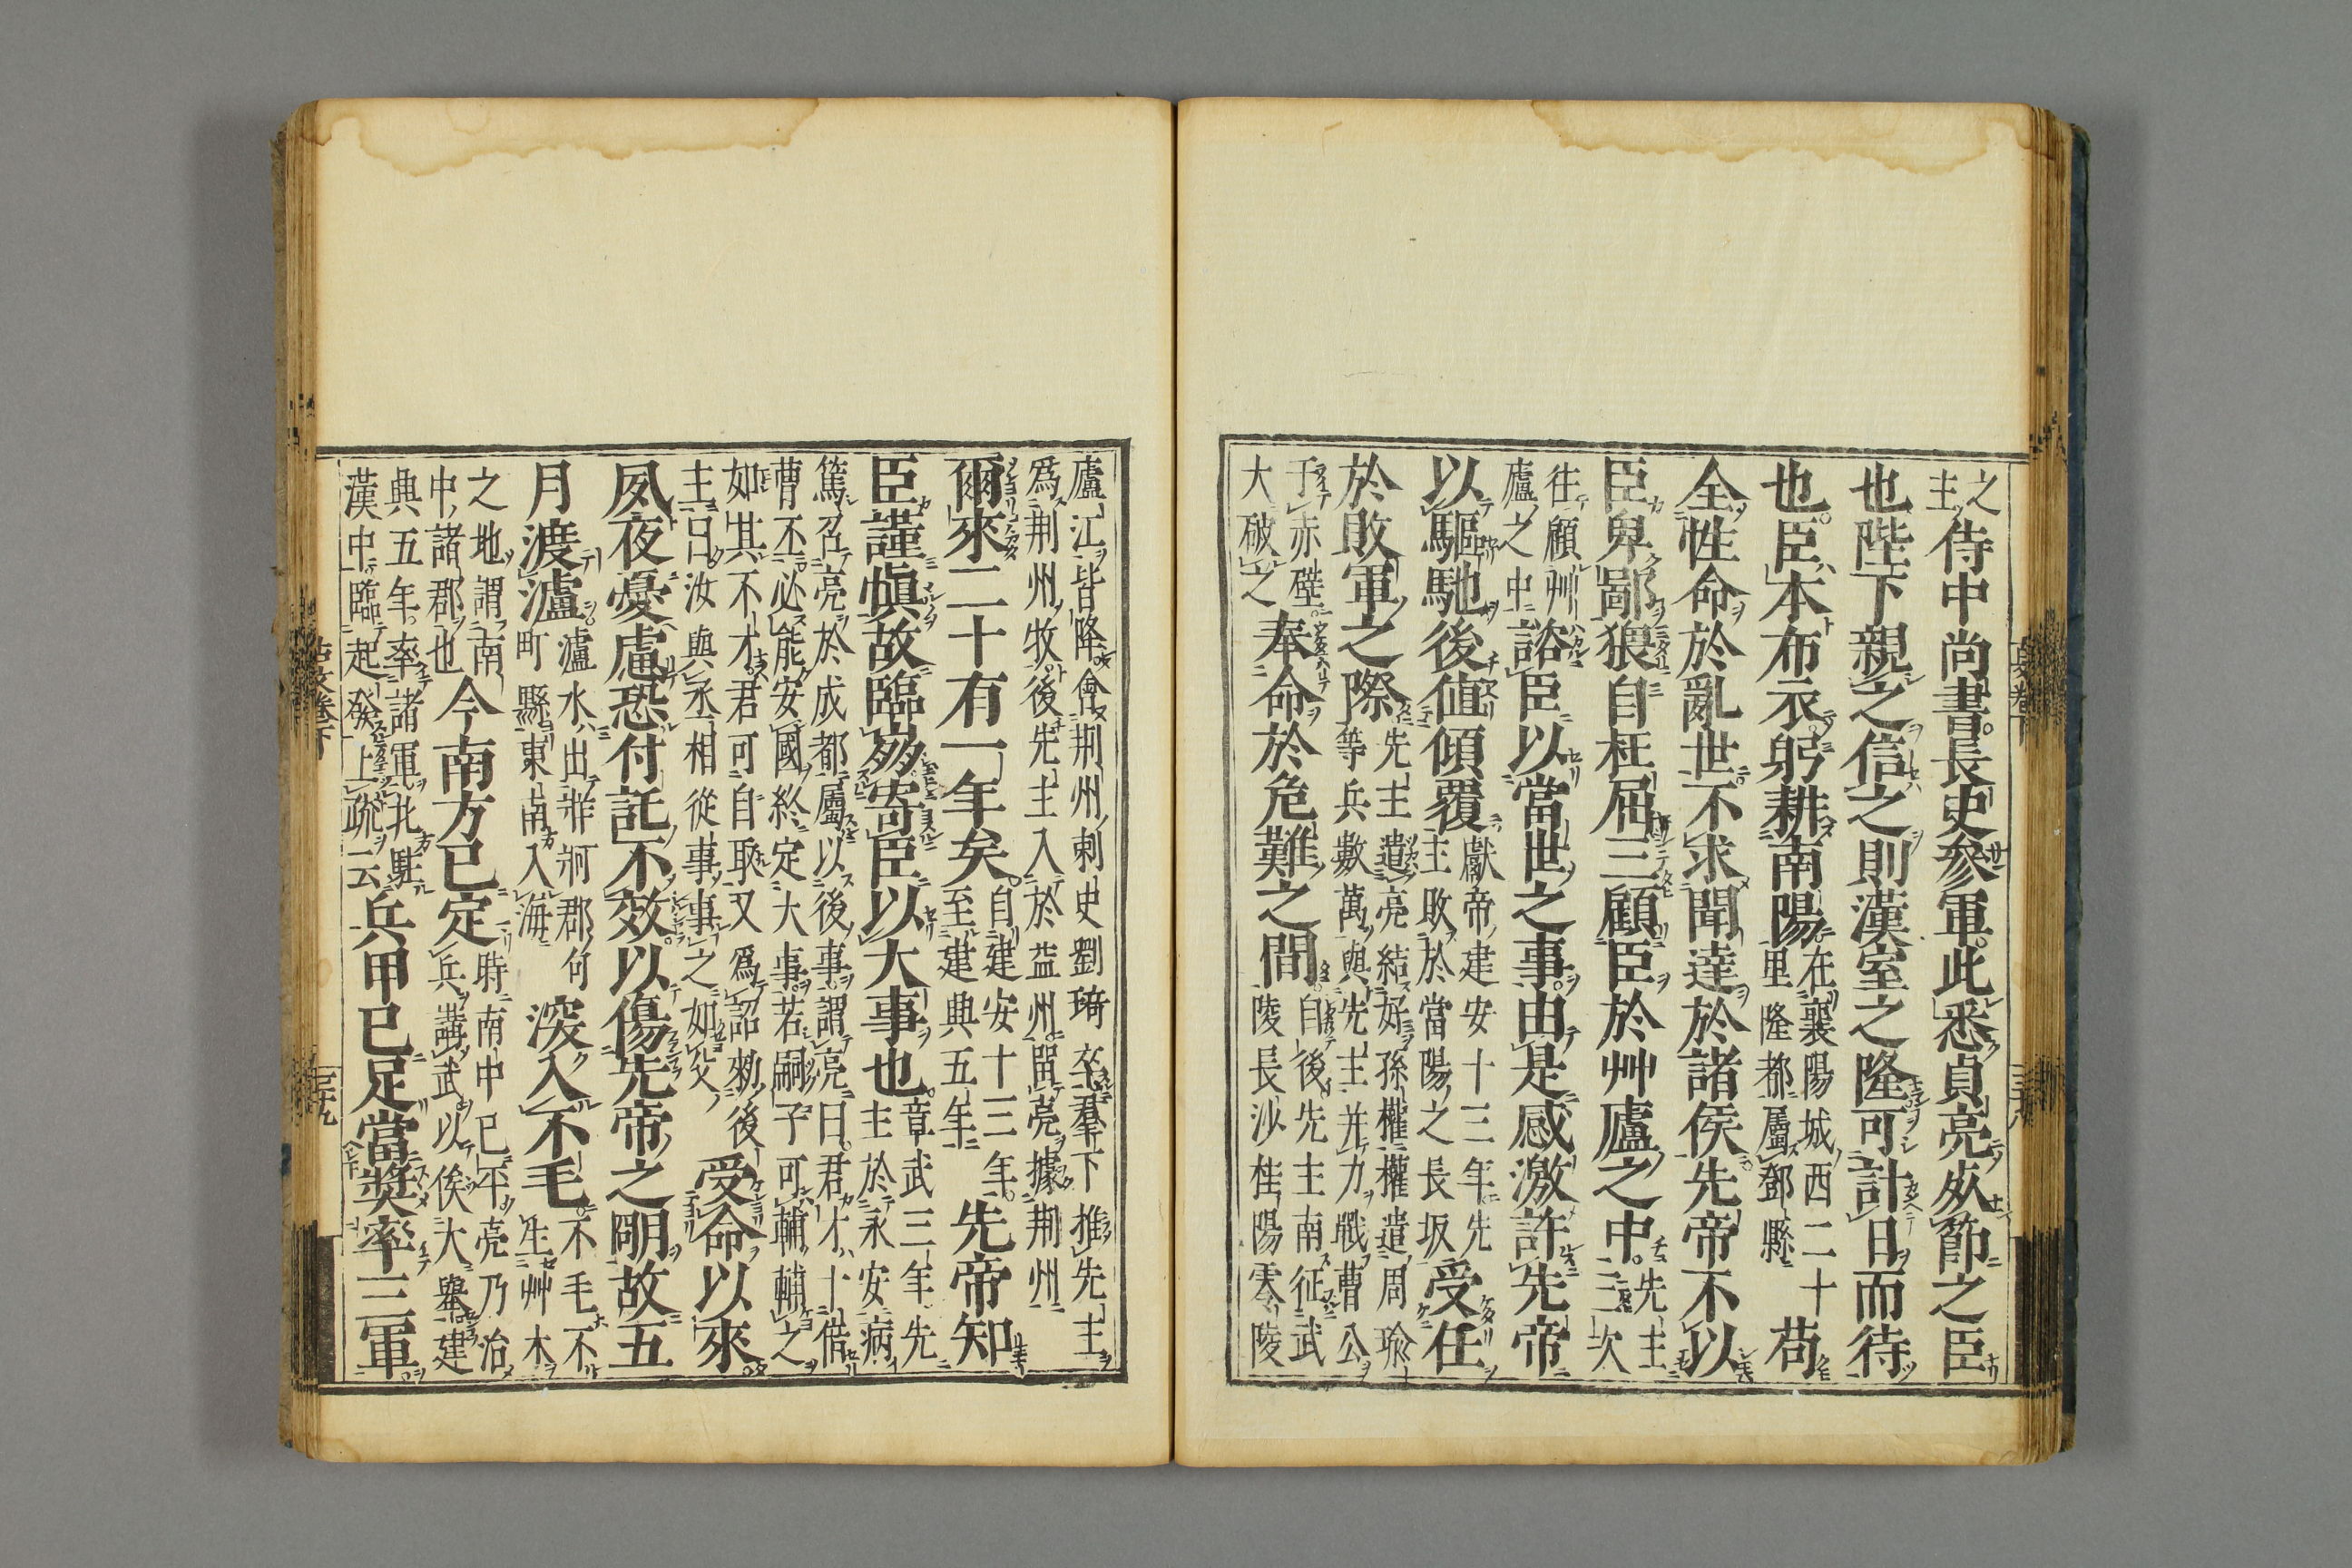 之主侍中尚書長史參軍此悉貞亮死節之臣
也陛下親之信之則漢室之隆可計日而待
也臣本布衣躬耕南陽在襄陽城西二十里隆都屬鄧縣苟
全性命於亂世不求聞達於諸侯先帝不以
臣卑鄙猥自枉屈三顧臣於艸廬之中先主三次
往顧艸廬之中諮臣以當世之事由是感激許先帝
以驅馳後值傾覆獻帝建安十三年先主敗於當陽之長坂受任
於敗軍之際先主遣亮結好孫權權遣周瑜等兵數萬與先主并力戰曹公
于赤壁大破之奉命於危難之間自後先主南征武陵長沙桂陽零陵
廬江皆降會荆州刺史劉琦卒羣下推先主
爲荆州牧後先主入於益州留亮據荆州
爾來二十有一年矣自建安十三年至建興五年先帝知
臣謹愼故臨崩寄臣以大事也章武三年先主於永安病
篤召亮於成都屬以後事謂亮曰君才十倍
曹丕必能安國終定大事若嗣子可輔輔之
如其不才君可自取又爲詔勑後
主曰汝與丞相從事事之如父受命以來
夙夜憂慮恐付託不效以傷先帝之明故五
月渡瀘瀘水出牂牁郡句町縣東南入海深入不毛不毛不生艸木
之地謂南中諸郡也今南方已定時南中已平亮乃治兵講武以俟大舉建
興五年率諸軍北駐漢中臨起發上疏云兵甲已足當奬率三軍
古文卷下
三十九